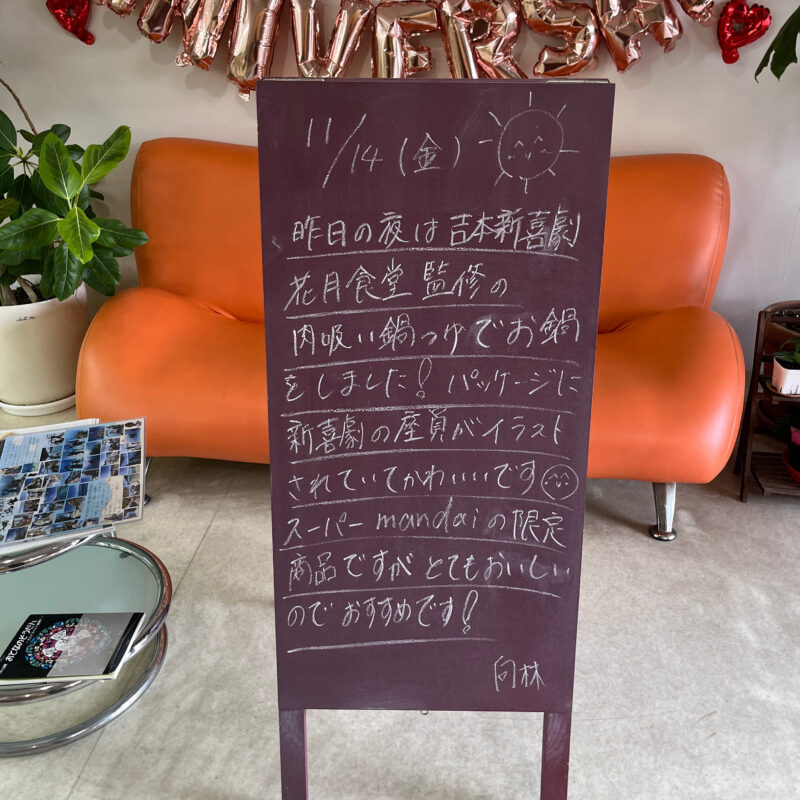 ANNIVERSARY
11/14(金)
昨日の夜は吉本新喜劇
花月食堂監修の
肉吸い鍋つゆでお鍋
をしました! パッケージに
新喜劇の座員がイラスト
されていてかわいいです
スーパーmandaiの限定
商品ですが とてもおいしい
ので おすすめです!
向林